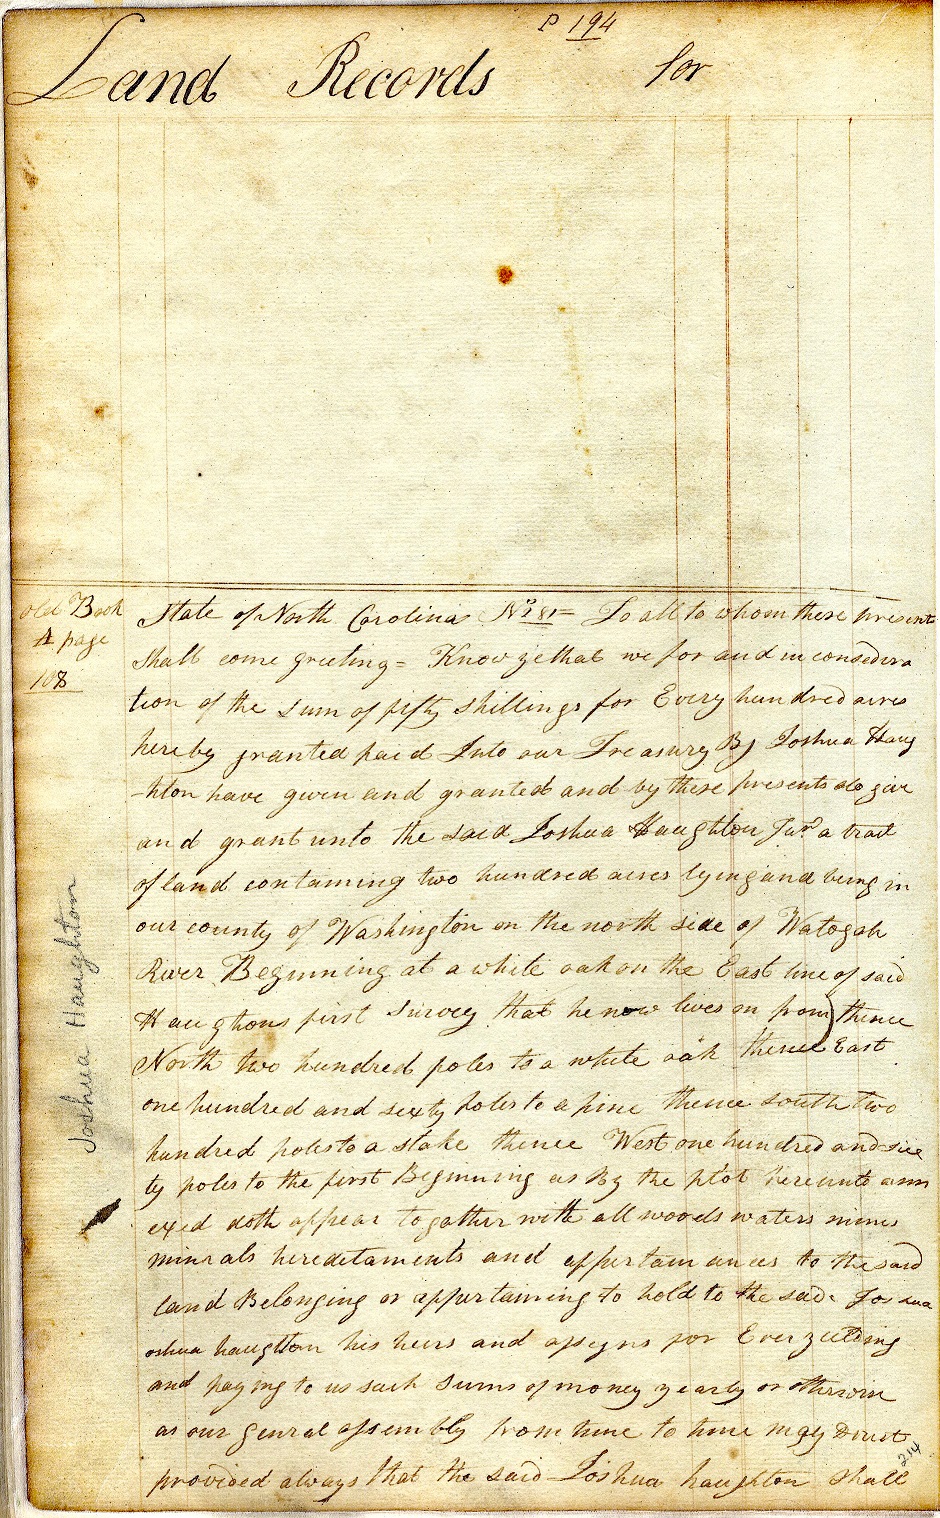 P 194
Land Records for
Old Book
A page
108
State of North Carolina No 81 = To all to whom these present
Shall come greeting = Know ye that we for and in consedera
tion of the sum of fifty shillings for Every hundred acres
hereby granted paid Into our Treasury By Joshua Haug
-hton have given and granted and by these presents do give
and grant unto the said Joshua Haughton Junr a tract
of land containing two hundred acres lying and being in
our county of Washington on the north side of Watogah
River Beginning at a white oak on the East line of said
Haughons first survey that he now lives on from) thence
North two hundred poles to a white oak thence East
one hundred and sixty poles to a pine thence south two
hundred poles to a stake thence West one hundred and six
ty poles to the first Beginning as By the plot hereunto ann
exed doth appear togather with all woods waters mines
minrals hereditaments and appertainances to the said
land Belonging or appurtaining to hold to the said Joshua
oshua haughton his heirs and assigns for Ever yielding
and paying to us such sums of money yearly or otherwise
as our genral assembly from time to time may Direct
provided always that the said Joshua haughton shall
Joshua Haughton
214